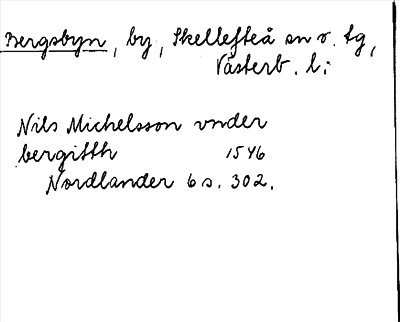 Bergsbyn, by, Skellefteå sn o. tg,
Västerb. l:
Nils Michelsson vnder
bergitth 1546
Nordlander 6 s. 302.